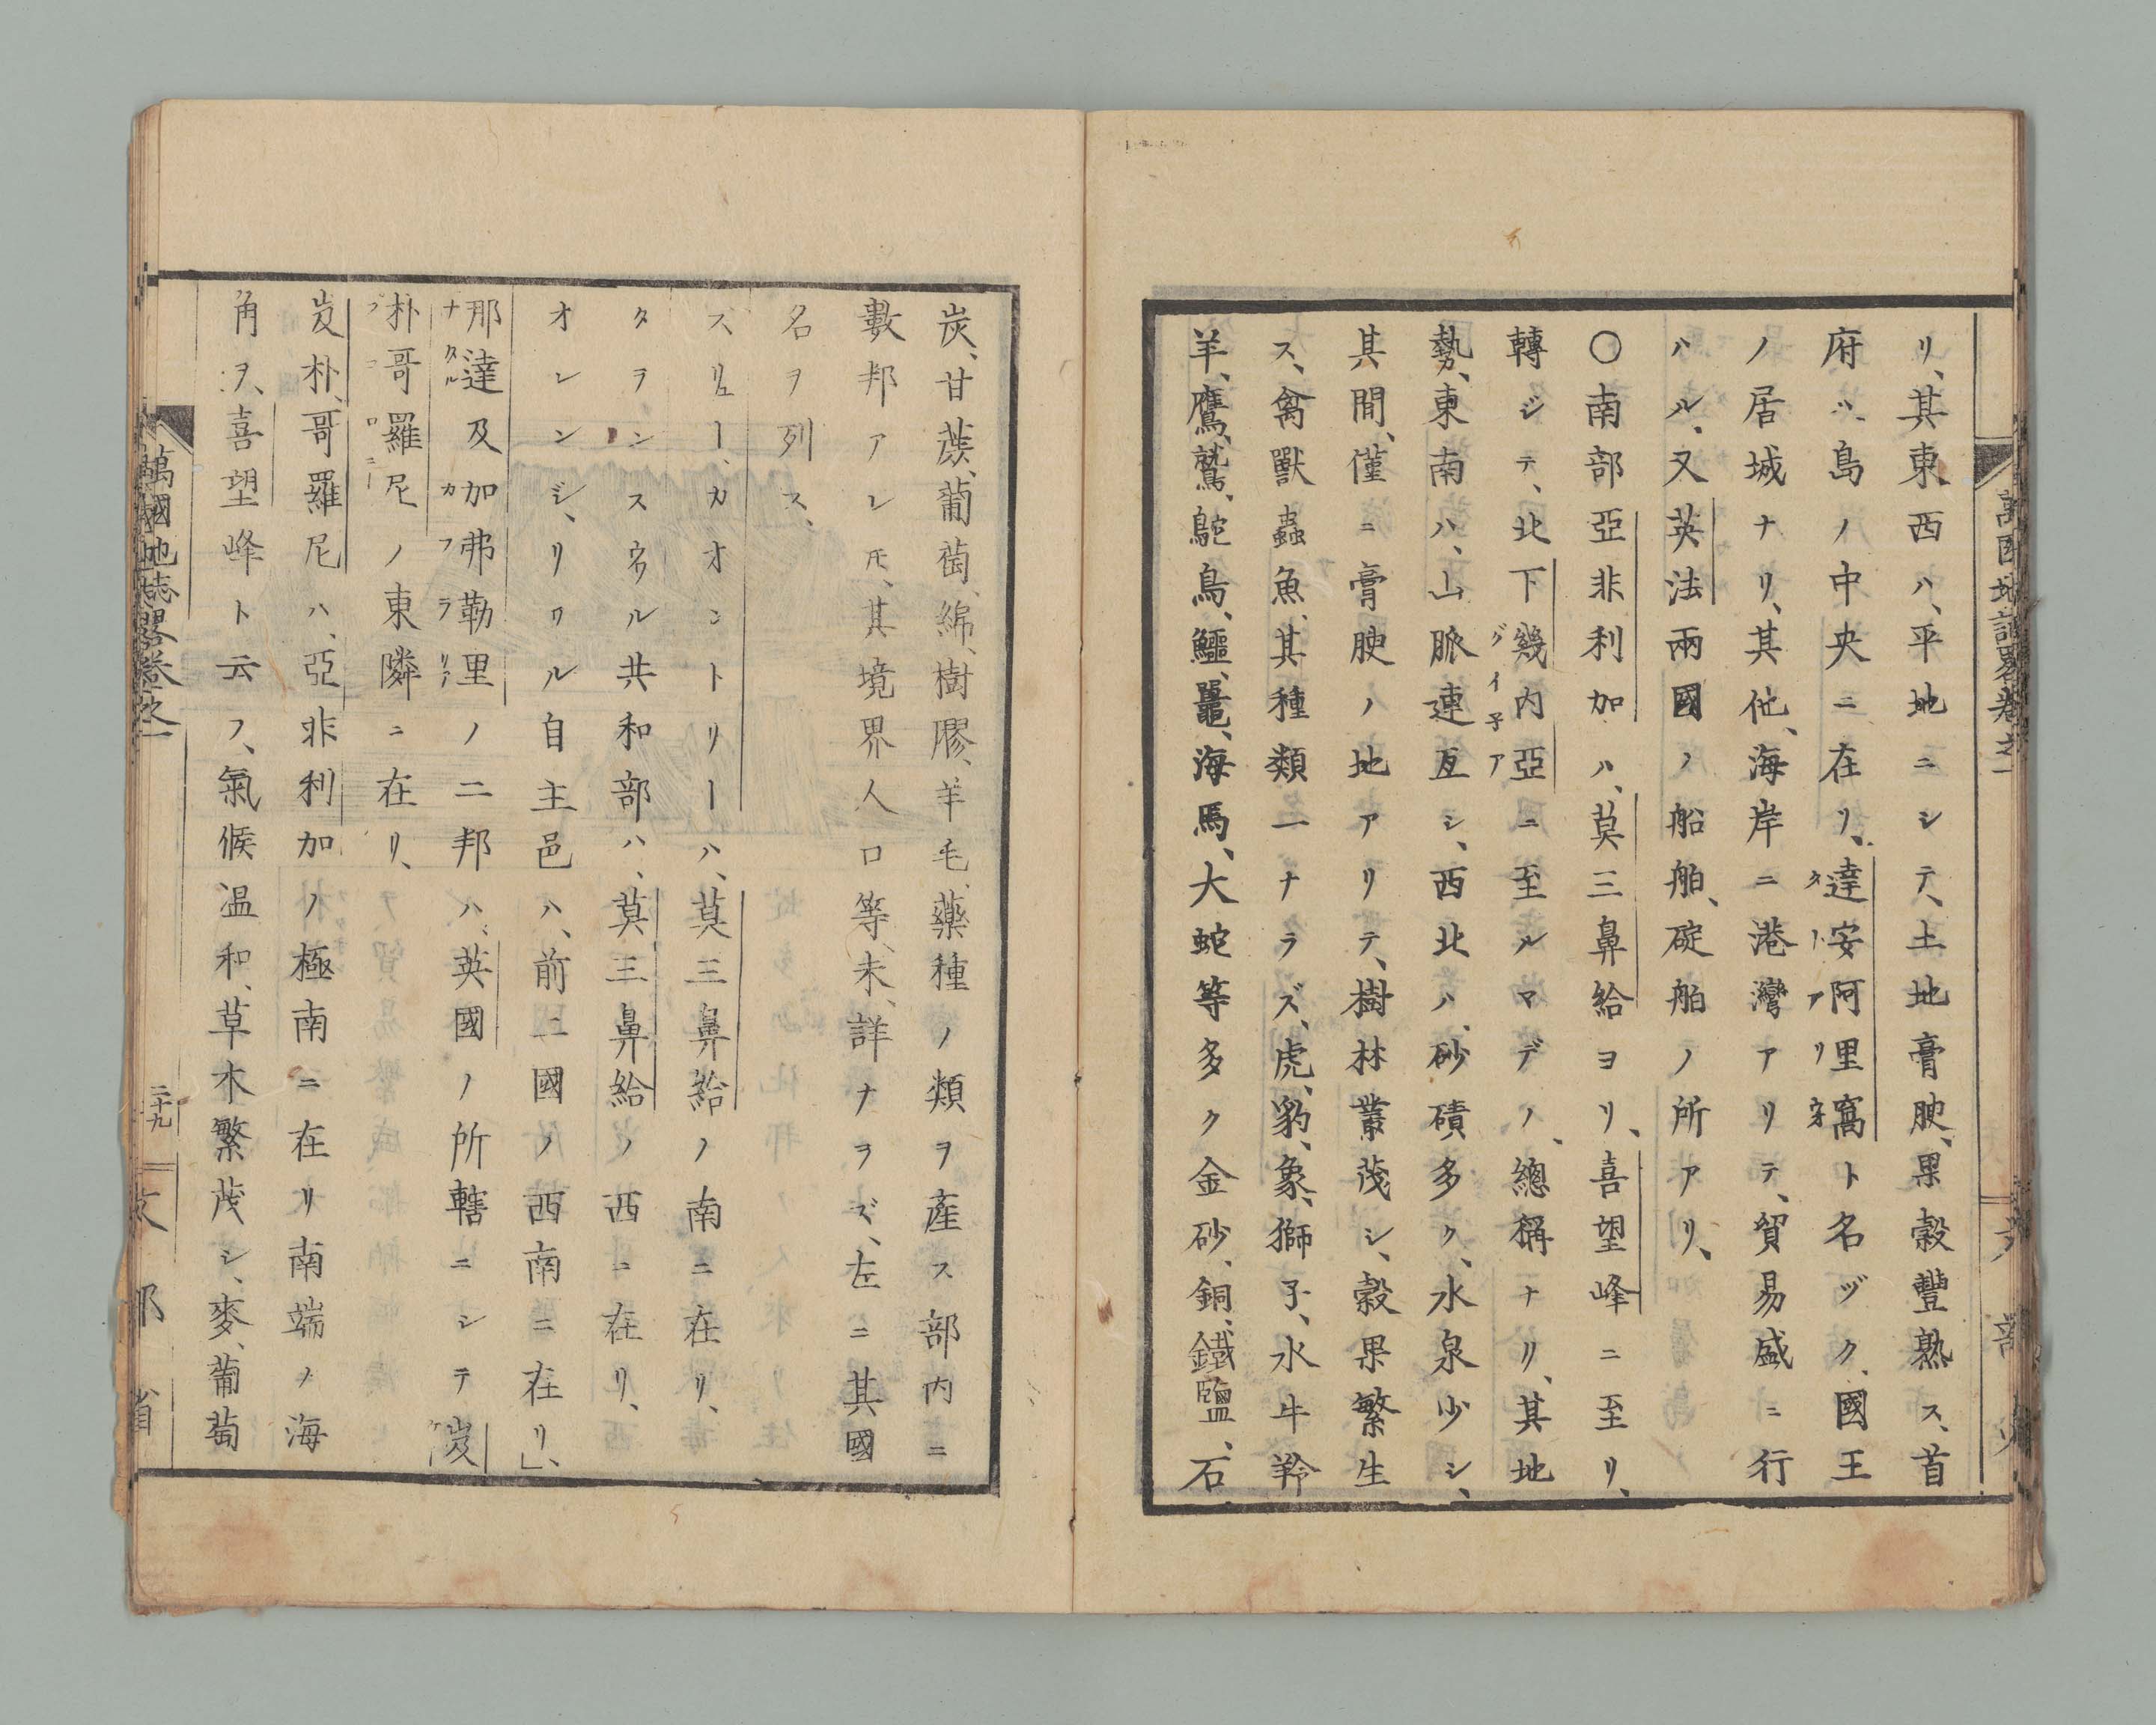 萬國地誌畧卷之一
リ、其東西ハ、平地ニシテ、土地膏腴、果穀豐熟ス、首
府ハ、島ノ中央ニ在リ、達安阿里窩ト名ヅク、國王
タ ト ア リ ヲ
ノ居城ナリ、其他、海岸ニ港灣アリテ、貿易盛ニ行
ハル、又英法兩國ノ船舶、碇舶ノ所アリ、
〇南部亞非利加ハ、莫三鼻給ヨリ、喜望峰ニ至リ、
轉ジテ、北下幾內亞ニ至ルマデノ、總稱ナリ、其地
グイ子ア
勢、東南ハ、山脈連亙シ、西北ハ、砂磧多ク、水泉少シ、
其間、僅ニ膏腴ノ地アリテ、樹林叢茂シ、穀果繁生
ス、禽獸蟲魚、其種類一ナラズ、虎、豹、象、獅子、水牛、羚
羊、鷹、鷲、鴕鳥、鱷、鼉、海馬、大蛇等多ク金砂、銅、鐵、鹽、石
炭、甘蔗、葡萄、綿、樹膠、羊毛、藥種ノ類ヲ產ス部內ニ
數邦アレ𪜈、其境界人口等、未、詳ナヲズ、左ニ其國
名ヲ列ス、
スリュー、カオントリーハ、莫三鼻給ノ南ニ在リ、
タランスヴァル共和部ハ、莫三鼻給ノ西ニ在リ、
オレンジ、リワル自主邑ハ、前二國ノ西南ニ在リ」、
那達及加弗勒里ノ二邦ハ、英國ノ所轄ニシテ岌
ナ タル カ フ ラ リア ケー
朴哥羅尼ノ東隣ニ在リ、
プ コ ロ ニー
岌朴、哥羅尼ハ、亞非利加ノ極南ニ在リ南端ノ海
角ヲ、喜望峰ト云フ、氣候温和、草木繁茂シ、麥、葡萄
萬國地誌畧卷之一
二十九
文部省